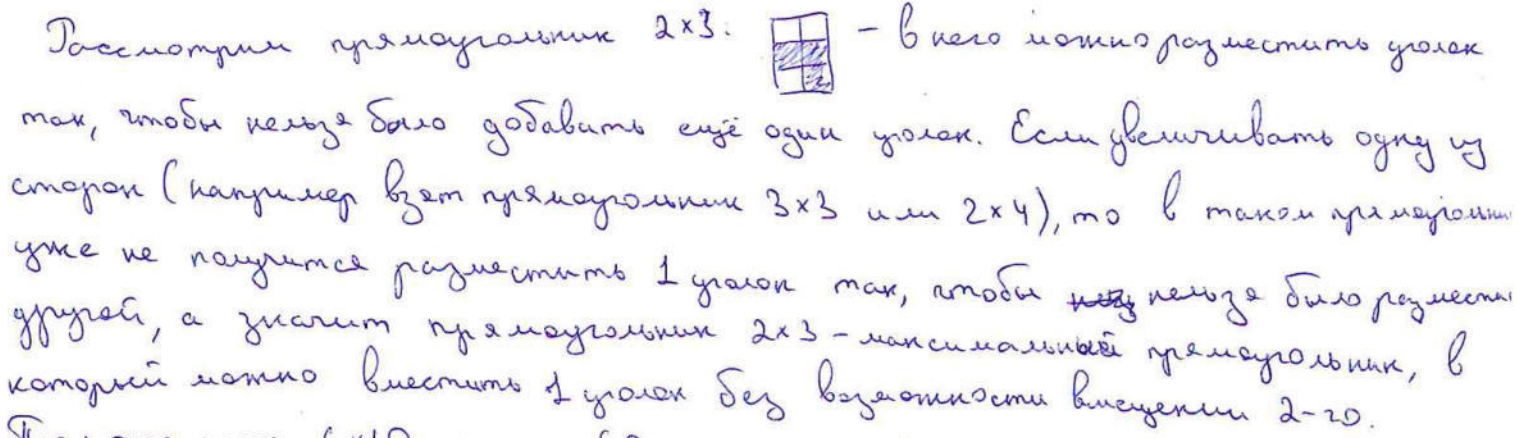 Рассмотрим прямоугольник 2×3. – в него можно разместить уголок
так, чтобы нельзя было добавить ещё один уголок. Если увеличивать одну из
сторон (например взят прямоугольник 3×3 или 2×4), то в таком прямоугольни
уже не получится разместить 1 уголок так, чтобы нельзя было размести
другой, а значит прямоугольник 2×3 – максимальный прямоугольник, в
который можно вместить 1 уголок без возможности вмещения 2-го.